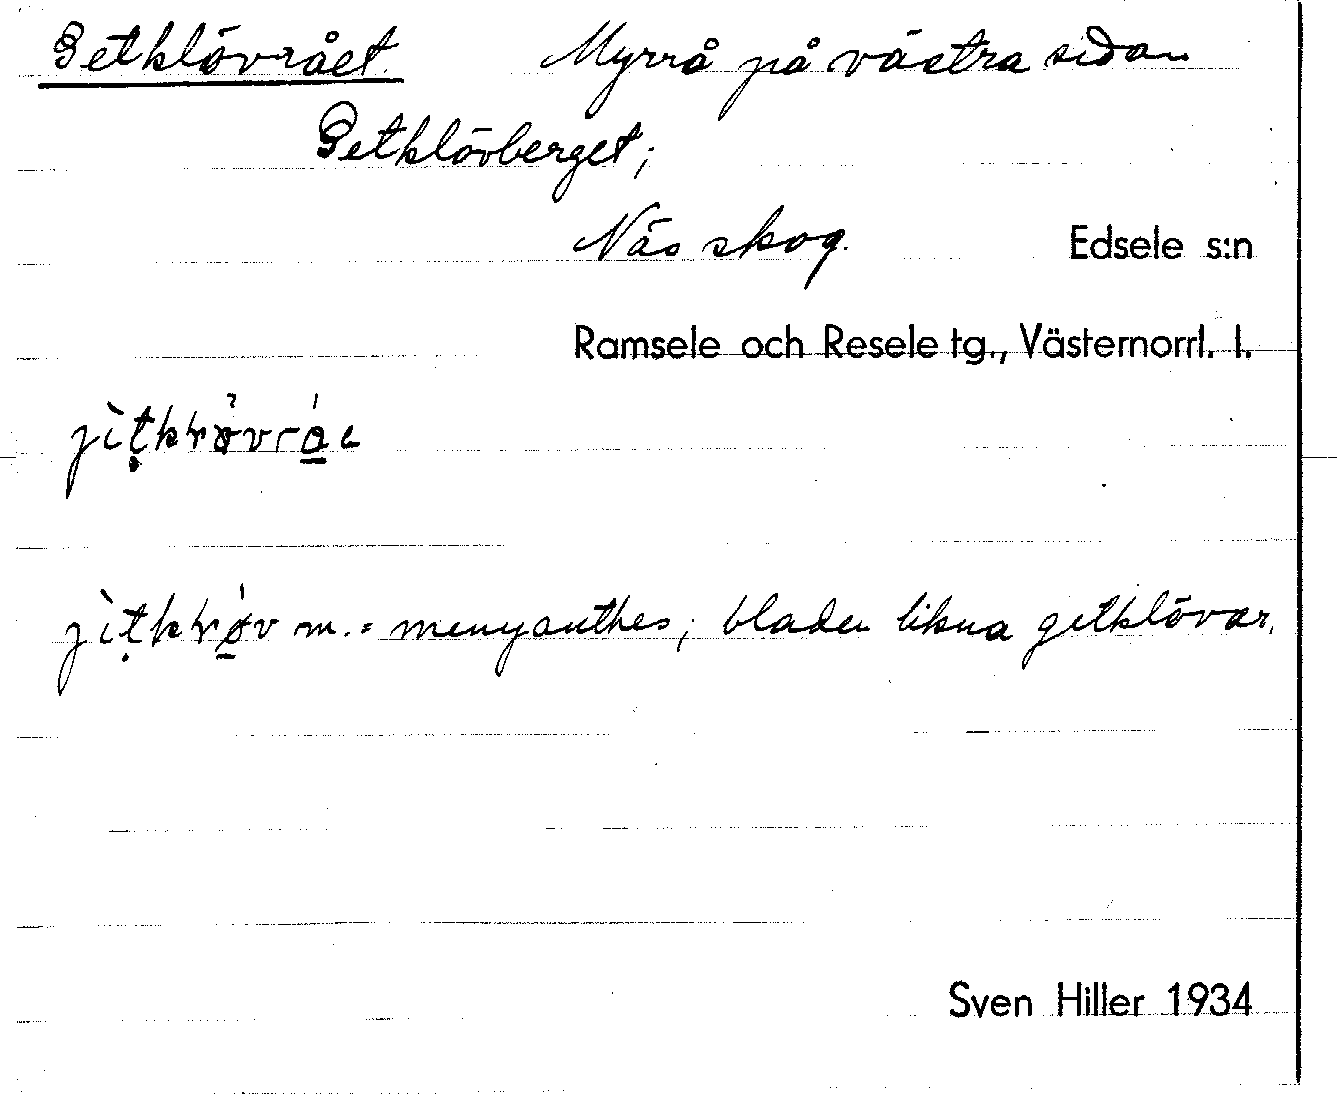 Getklövrået. Myrrå på västra sidan
Getklövberget;
Näs skog. Edsele s:n
Ramsele och Resele tg., Västernorrl. l.
m. = menyanthes; bladen likna getklövar.
Sven Hiller 1934